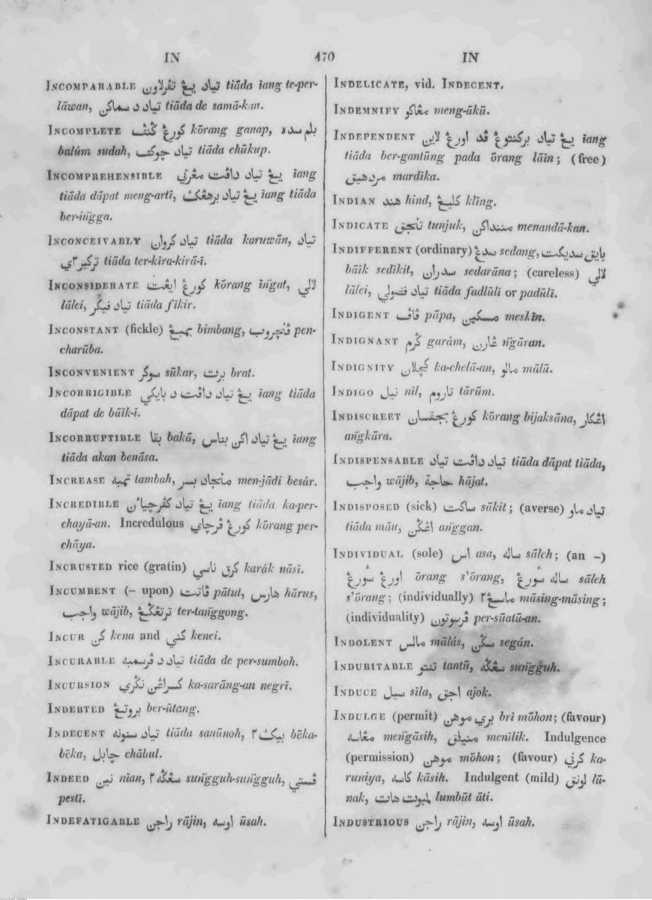 IN
470
IN
INCOMPARABLE تياد يڠ تڤرلاون tiāda iang te-per-
lāwan, تياد د سماکن tiāda de samā-kan.
INCOMPLETE کورڠ گنڤ kōrang ganap, بلم سده
balūm sudah, تياد چوکڤ tiāda chūkup.
INCOMPREHENSIBLE يڠ تياد داڤت مڠرتي iang
tiāda dāpat meng-artī, يڠ تياد برهڠگ iang tiāda
ber-inġga.
INCONCEIVABLY تياد کروان tiāda karuwān, تياد
ترکيرا٢ي tiāda ter-kīra-kirā-ī.
INCONSIDERATE کورڠ ايڠت kōrang iṅgat, لالي
lālei, تياد فيکر tiāda fikir.
INCONSTANT (fickle) بمبڠ bimbang, ڤنچروب pen-
charūba.
INCONVENIENT سوکر sūkar, برت brat.
INCORRIGIBLE يڠ تياد داڤت د بايکي iang tiāda
dāpat de bāik-ī.
INCORRUPTIBLE بقا bakā, يڠ تياد اکن بناس iang
tiāda akan benāsa.
INCREASE تمبه tambah, منجاد بسر men-jādi besār.
INCREDIBLE يڠ تياد کڤرچيان iang tiāda ka-per-
chayā-an. Incredulous کورڠ ڤرچاي kōrang per-
chāya.
INCRUSTED rice (gratin) کرق ناسي karák nāsī.
INCUMBENT (– upon) ڤاتت pātut, هارس hārus,
واجب wājib, ترتڠگڠ ter-taṅggong.
INCUR کن kena and کني kenei.
INCURABLE تياد د ڤرسمبه tiāda de per-sumboh.
INCURSION کسراڠن نگري ka-sarāng-an negrī.
INDEBTED بروتڠ ber-ūtang.
INDECENT تياد سنونه tiāda sanūnoh, بيک٢ bēka-
bēka, چابل chābul.
INDEED نين nian, سڠگه٢ suṅgguh-suṅgguh, ڤستي
pestī.
INDEFATIGABLE راجن rājin, اوسه ūsah.
INDELICATE, vid. INDECENT.
INDEMNIFY مڠاکو meng-ākū.
INDEPENDENT يڠ تياد برگنتوڠ ڤد اورڠ لاين iang
tiāda ber-gantūng pada ōrang lāin; (free)
مردهيک mardīka.
INDIAN هند hind, کليڠ klīng.
INDICATE تنجق tunjuk, مننداکن menandā-kan.
INDIFFERENT (ordinary) سدڠ sedang, بايق سديکت
bāik sedīkit, سدران sedarāna; (careless) لالي
lālei, تياد فضولي tiāda fadlūli or padūli.
INDIGENT ڤاڤ pāpa, مسکين meskīn.
INDIGNANT گرم garám, ڠارن ṅgāran.
INDIGNITY کچلان ka-chelā-an, مالو mālū.
INDIGO نيل nīl, تاروم tārūm.
INDISCREET کورڠ بجقسان kōrang bijaksāna, اڠکار
aṅgkāra.
INDISPENSABLE تياد داڤت تياد tiāda dāpat tiāda,
واجب wājib, حاجة hājat.
INDISPOSED (sick) ساکت sākit; (averse) تياد ماو
tiāda māu, اڠگن aṅggan.
INDIVIDUAL (sole) اس asa, ساله sāleh; (an –)
اورڠ سؤرڠ ōrang s'ōrang, ساله سؤرڠ sāleh
s'ōrang; (individually) ماسڠ٢ māsing-māsing;
(individuality) ڤرسواتون per-sūatū-an.
INDOLENT مالس mālās, سگن segán.
INDUBITABLE تنتو tantū, سڠگه suṅgguh.
INDUCE سيل sīla, اجق ajok.
INDULGE (permit) بري موهن brī mōhon; (favour)
مڠاسه meṅgāsih, منيلق menīlik. Indulgence
(permission) موهن mōhon; (favour) کرني ka-
runiya, کاسه kāsih. Indulgent (mild) لونق lū-
nak, لمبوت هات lumbūt āti.
INDUSTRIOUS راجن rājin, اوسه ūsah.